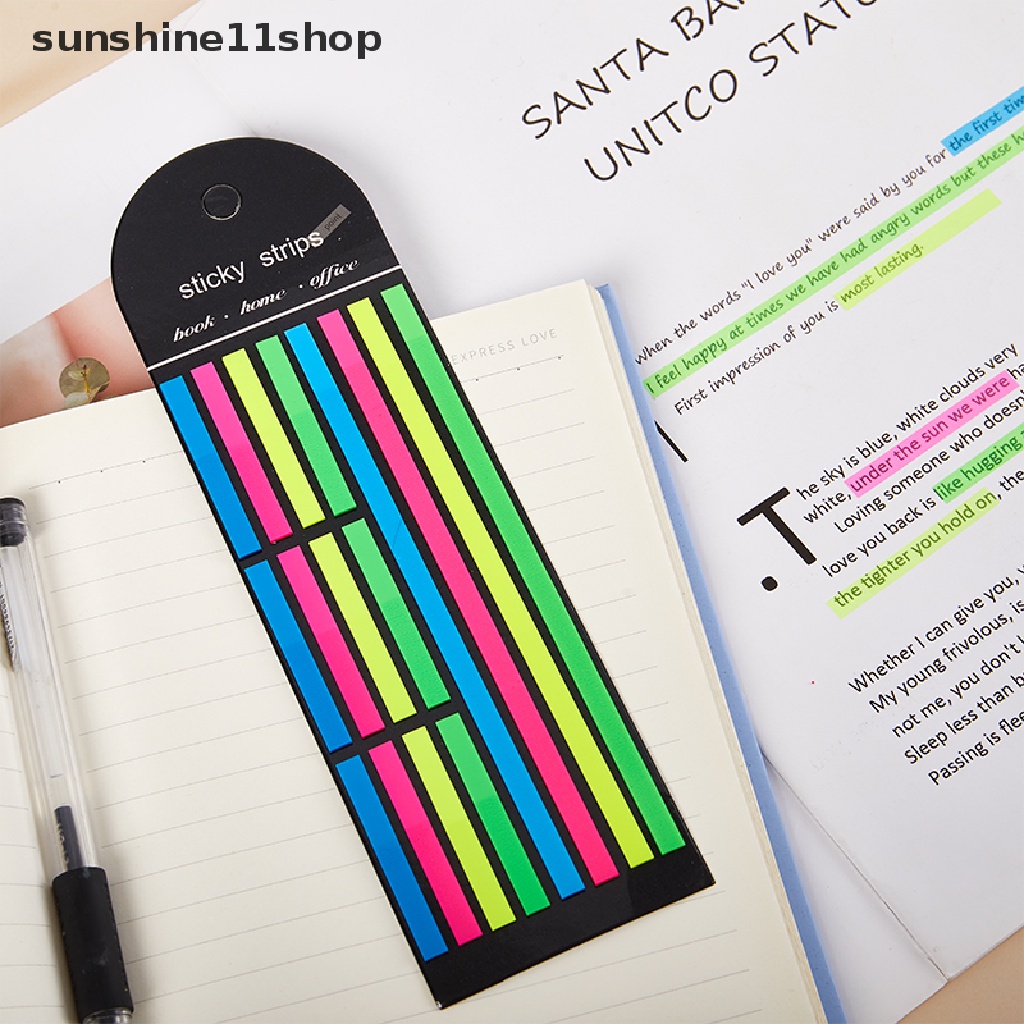 sunshine11shop
SANTA
UNITCO
point
sticky strips
book · home · office
EXPRESS LOVE
When the words "I love you" were said by you for the first
I feel happy at times we have had angry words but these
First impression of you is most lasting.
The sky is blue, white clouds very
white, under the sun we were
Loving someone who
love you back is like hugging
the tighter you hold on, the
Whether I can give you,
My young frivolous, is
not me, you don't
Sleep less than
Passing is